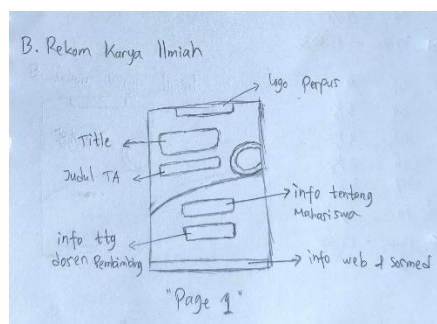 B. Rekom Karya Ilmiah
logo Perpus
Title
Judul TA
info tentang
Mahasiswa
info ttg
dosen Pembimbing
info web & Sosmed
"Page 1"